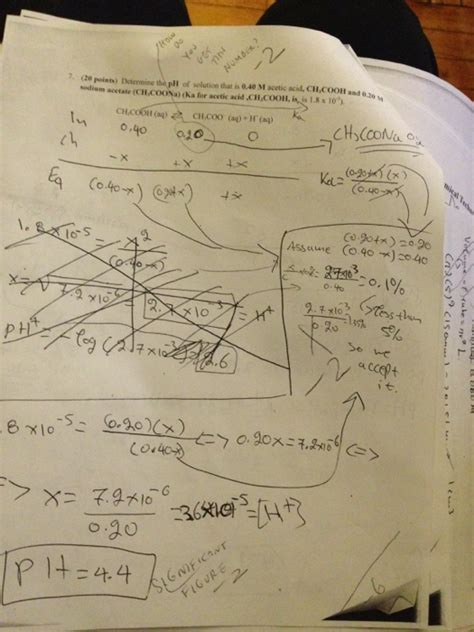 HOW
DO
YOU
GET THIS
NUMBER?
-2
7. (20 points) Determine the pH of solution that is 0.40 M acetic acid, CH3COOH and 0.20 M
sodium acetate (CH3COONa) (Ka for acetic acid ,CH3COOH, is, is 1.8 x 10-5).
Ka
CH3COOH (aq) ⇌ CH3COO- (aq) + H+ (aq)
CH3COONa
In 0.40 0.20 0
Ch -x +x +x
Eq (0.40-x) (0.20+x) +x
Ka = (0.20+x)(x)
(0.40-x)
1.8x10-5 = x2
(0.40-x)
x = √7.2x10-6 = 2.7x10-3 = H+
PH+ = -log(2.7x10-3) 2.6
Assume (0.20+x) = 0.20
(0.40-x) = 0.40
2.7x10-3
0.40
= 0.1%
2.7x10-3
0.20
(x less than
5%
so we
accept
it.
-2
.8x10-5 = (0.20)(x) <=> 0.20x = 7.2x10-6 <=>
(0.40-x)
=> x = 7.2x10-6 = 36x10-5 = [H+]
0.20
PH = 4.4
SIGNIFICANT
FIGURE
-2
6